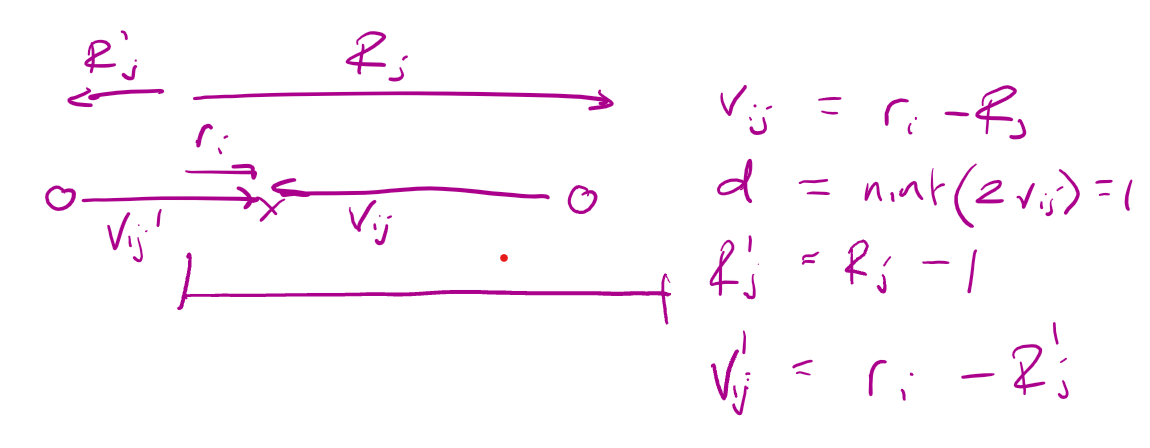 R'j Rj
ri
vij' vij
vij = ri - Rj
d = nint(2 vij) = 1
R'j = Rj - 1
v'ij = ri - R'j